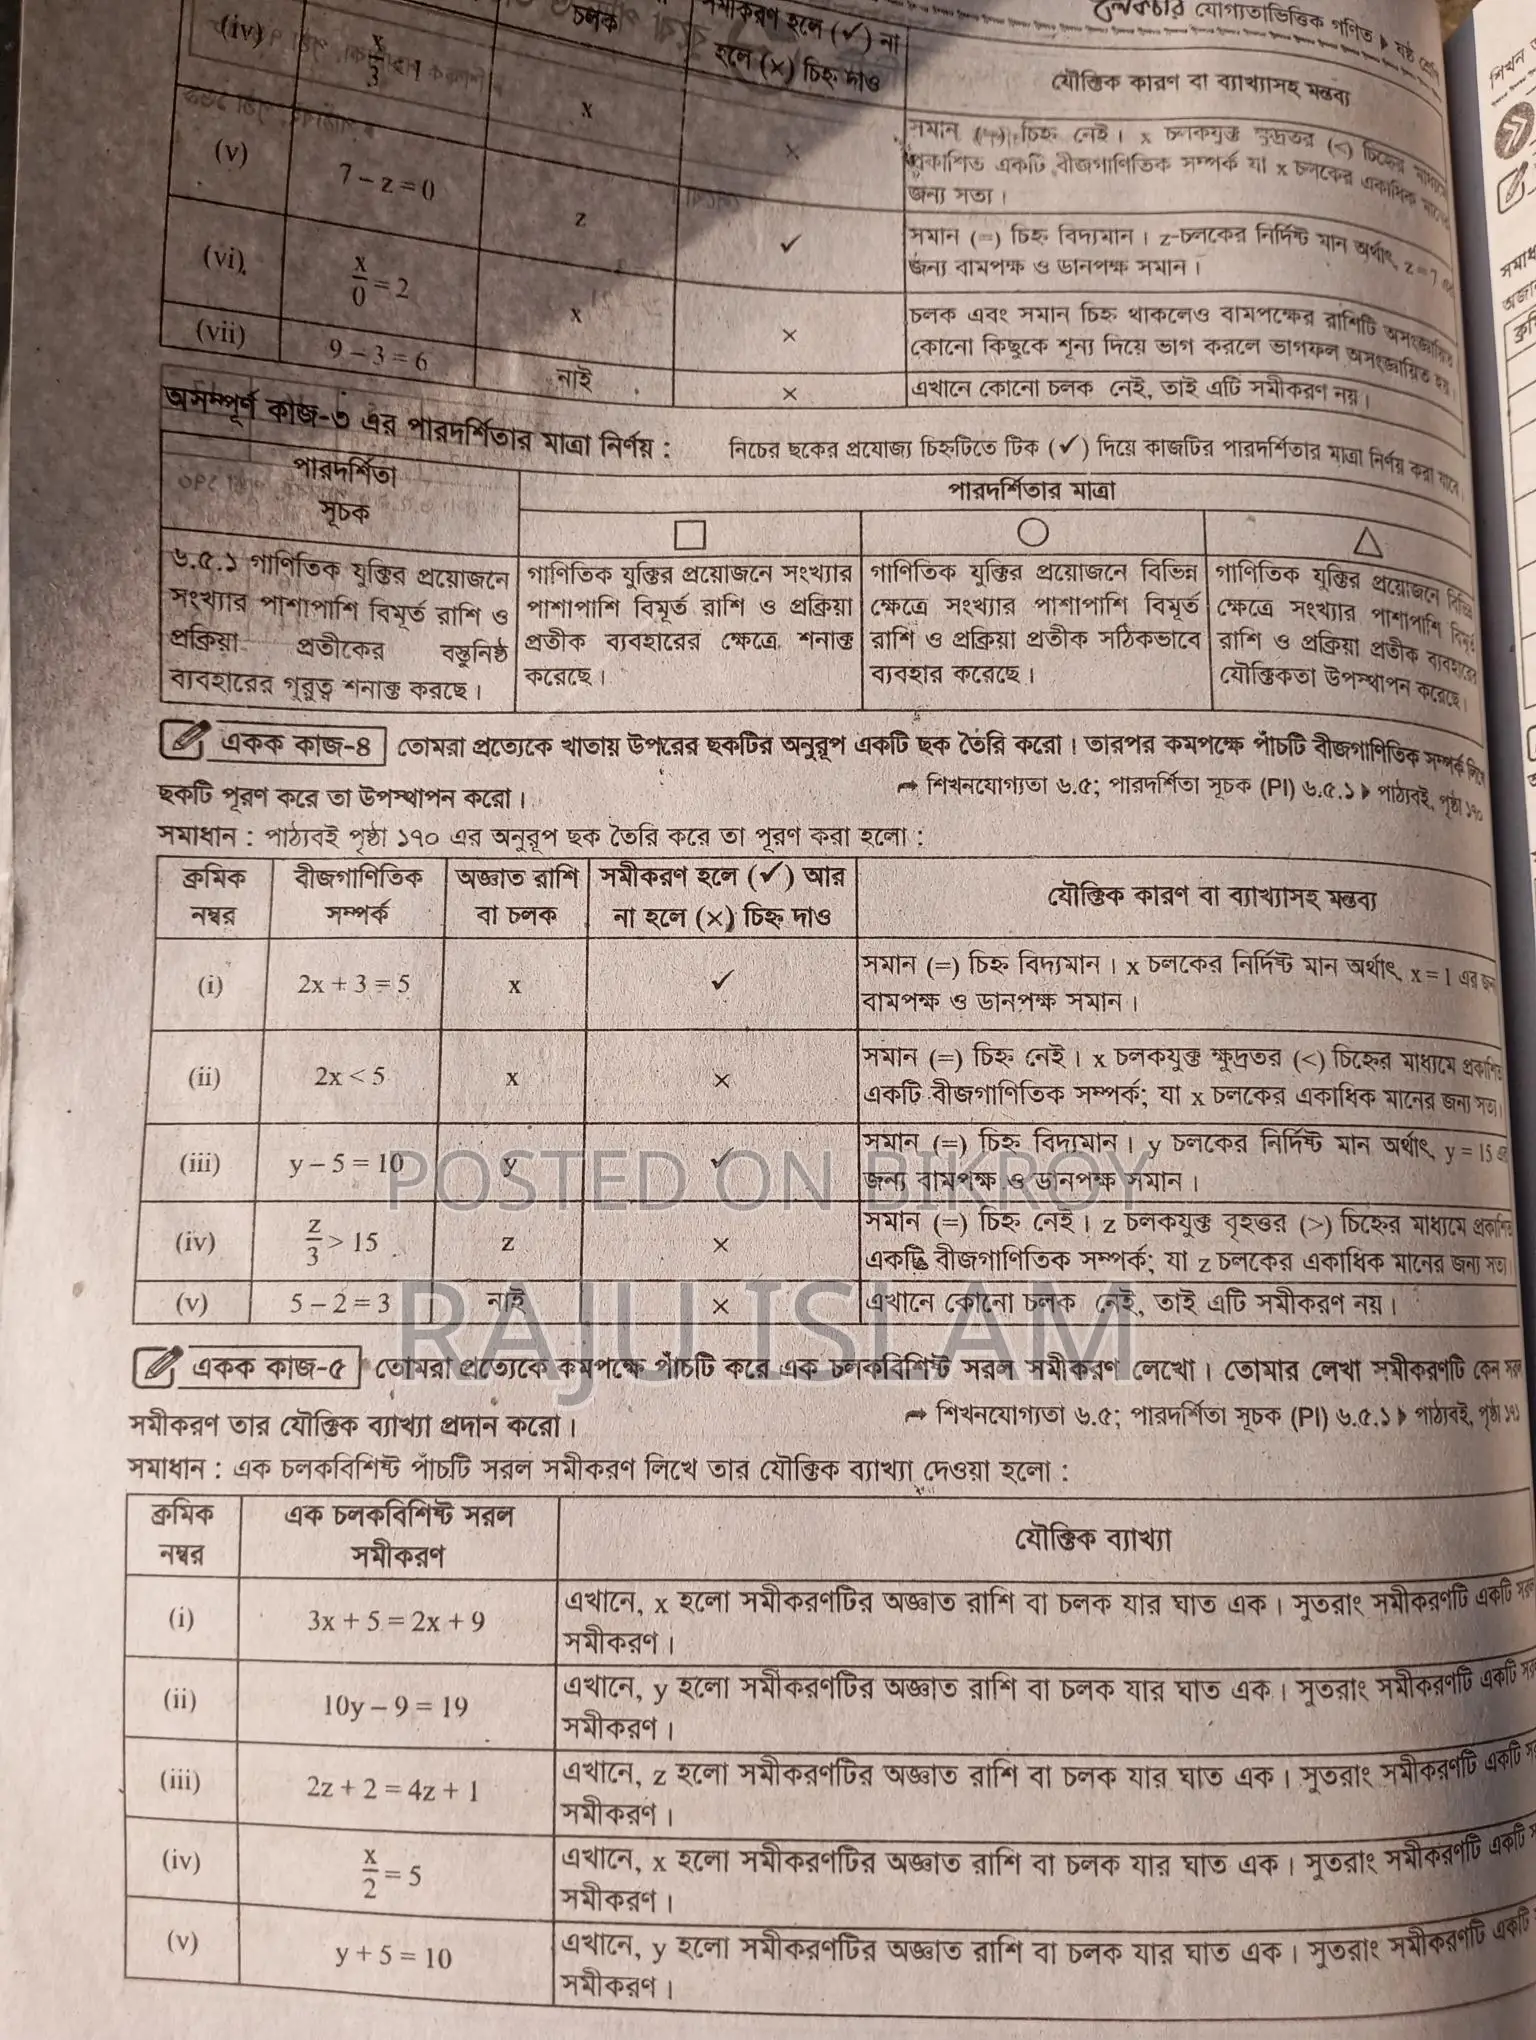 লেকচার যোগ্যতাভিত্তিক গণিত ▶ ষষ্ঠ শ্রেণি
চলক
সমীকরণ হলে (✓) না
হলে (×) চিহ্ন দাও
যৌক্তিক কারণ বা ব্যাখ্যাসহ মন্তব্য
(iv)
x
×
সমান (=) চিহ্ন নেই। x চলকযুক্ত ক্ষুদ্রতর (<) চিহ্নের মাধ্যমে
প্রকাশিত একটি বীজগাণিতিক সম্পর্ক যা x চলকের একাধিক মানের
জন্য সত্য।
(v) 7 – z = 0 z ✓
সমান (=) চিহ্ন বিদ্যমান। z-চলকের নির্দিষ্ট মান অর্থাৎ, z = 7
জন্য বামপক্ষ ও ডানপক্ষ সমান।
(vi) x/0 = 2 x ×
চলক এবং সমান চিহ্ন থাকলেও বামপক্ষের রাশিটি অসংজ্ঞায়িত
কোনো কিছুকে শূন্য দিয়ে ভাগ করলে ভাগফল অসংজ্ঞায়িত হয়।
(vii) 9 – 3 = 6 নাই × এখানে কোনো চলক নেই, তাই এটি সমীকরণ নয়।
অসম্পূর্ণ কাজ-৩ এর পারদর্শিতার মাত্রা নির্ণয় : নিচের ছকের প্রযোজ্য চিহ্নটিতে টিক (✓) দিয়ে কাজটির পারদর্শিতার মাত্রা নির্ণয় করা যাবে।
পারদর্শিতা
সূচক
পারদর্শিতার মাত্রা
□ ○ △
৬.৫.১ গাণিতিক যুক্তির প্রয়োজনে
সংখ্যার পাশাপাশি বিমূর্ত রাশি ও
প্রক্রিয়া প্রতীকের বস্তুনিষ্ঠ
ব্যবহারের গুরুত্ব শনাক্ত করছে।
গাণিতিক যুক্তির প্রয়োজনে সংখ্যার
পাশাপাশি বিমূর্ত রাশি ও প্রক্রিয়া
প্রতীক ব্যবহারের ক্ষেত্রে শনাক্ত
করেছে।
গাণিতিক যুক্তির প্রয়োজনে বিভিন্ন
ক্ষেত্রে সংখ্যার পাশাপাশি বিমূর্ত
রাশি ও প্রক্রিয়া প্রতীক সঠিকভাবে
ব্যবহার করেছে।
গাণিতিক যুক্তির প্রয়োজনে বিভিন্ন
ক্ষেত্রে সংখ্যার পাশাপাশি বিমূর্ত
রাশি ও প্রক্রিয়া প্রতীক ব্যবহারের
যৌক্তিকতা উপস্থাপন করেছে।
একক কাজ-৪ তোমরা প্রত্যেকে খাতায় উপরের ছকটির অনুরূপ একটি ছক তৈরি করো। তারপর কমপক্ষে পাঁচটি বীজগাণিতিক সম্পর্ক লিখে
ছকটি পূরণ করে তা উপস্থাপন করো। ➦ শিখনযোগ্যতা ৬.৫; পারদর্শিতা সূচক (PI) ৬.৫.১ ▶ পাঠ্যবই, পৃষ্ঠা ১৭০
সমাধান : পাঠ্যবই পৃষ্ঠা ১৭০ এর অনুরূপ ছক তৈরি করে তা পূরণ করা হলো :
ক্রমিক বীজগাণিতিক অজ্ঞাত রাশি সমীকরণ হলে (✓) আর যৌক্তিক কারণ বা ব্যাখ্যাসহ মন্তব্য
নম্বর সম্পর্ক বা চলক না হলে (×) চিহ্ন দাও
(i) 2x + 3 = 5 x ✓
সমান (=) চিহ্ন বিদ্যমান। x চলকের নির্দিষ্ট মান অর্থাৎ, x = 1 এর জন্য
বামপক্ষ ও ডানপক্ষ সমান।
(ii) 2x < 5 x ×
সমান (=) চিহ্ন নেই। x চলকযুক্ত ক্ষুদ্রতর (<) চিহ্নের মাধ্যমে প্রকাশিত
একটি বীজগাণিতিক সম্পর্ক; যা x চলকের একাধিক মানের জন্য সত্য।
(iii) y – 5 = 10 y ✓
সমান (=) চিহ্ন বিদ্যমান। y চলকের নির্দিষ্ট মান অর্থাৎ, y = 15
জন্য বামপক্ষ ও ডানপক্ষ সমান।
POSTED ON BIKROY
(iv) z/3 > 15 z ×
সমান (=) চিহ্ন নেই। z চলকযুক্ত বৃহত্তর (>) চিহ্নের মাধ্যমে প্রকাশিত
একটি বীজগাণিতিক সম্পর্ক; যা z চলকের একাধিক মানের জন্য সত্য
(v) 5 – 2 = 3 নাই × এখানে কোনো চলক নেই, তাই এটি সমীকরণ নয়।
RAJU ISLAM
একক কাজ-৫ তোমরা প্রত্যেকে কমপক্ষে পাঁচটি করে এক চলকবিশিষ্ট সরল সমীকরণ লেখো। তোমার লেখা সমীকরণটি কেন সরল
সমীকরণ তার যৌক্তিক ব্যাখ্যা প্রদান করো। ➦ শিখনযোগ্যতা ৬.৫; পারদর্শিতা সূচক (PI) ৬.৫.১ ▶ পাঠ্যবই, পৃষ্ঠা ১৭১
সমাধান : এক চলকবিশিষ্ট পাঁচটি সরল সমীকরণ লিখে তার যৌক্তিক ব্যাখ্যা দেওয়া হলো :
ক্রমিক এক চলকবিশিষ্ট সরল যৌক্তিক ব্যাখ্যা
নম্বর সমীকরণ
(i) 3x + 5 = 2x + 9
এখানে, x হলো সমীকরণটির অজ্ঞাত রাশি বা চলক যার ঘাত এক। সুতরাং সমীকরণটি একটি সরল
সমীকরণ।
(ii) 10y – 9 = 19
এখানে, y হলো সমীকরণটির অজ্ঞাত রাশি বা চলক যার ঘাত এক। সুতরাং সমীকরণটি একটি
সমীকরণ।
(iii) 2z + 2 = 4z + 1
এখানে, z হলো সমীকরণটির অজ্ঞাত রাশি বা চলক যার ঘাত এক। সুতরাং সমীকরণটি একটি
সমীকরণ।
(iv) x/2 = 5
এখানে, x হলো সমীকরণটির অজ্ঞাত রাশি বা চলক যার ঘাত এক। সুতরাং সমীকরণটি একটি
সমীকরণ।
(v) y + 5 = 10
এখানে, y হলো সমীকরণটির অজ্ঞাত রাশি বা চলক যার ঘাত এক। সুতরাং সমীকরণটি একটি
সমীকরণ।